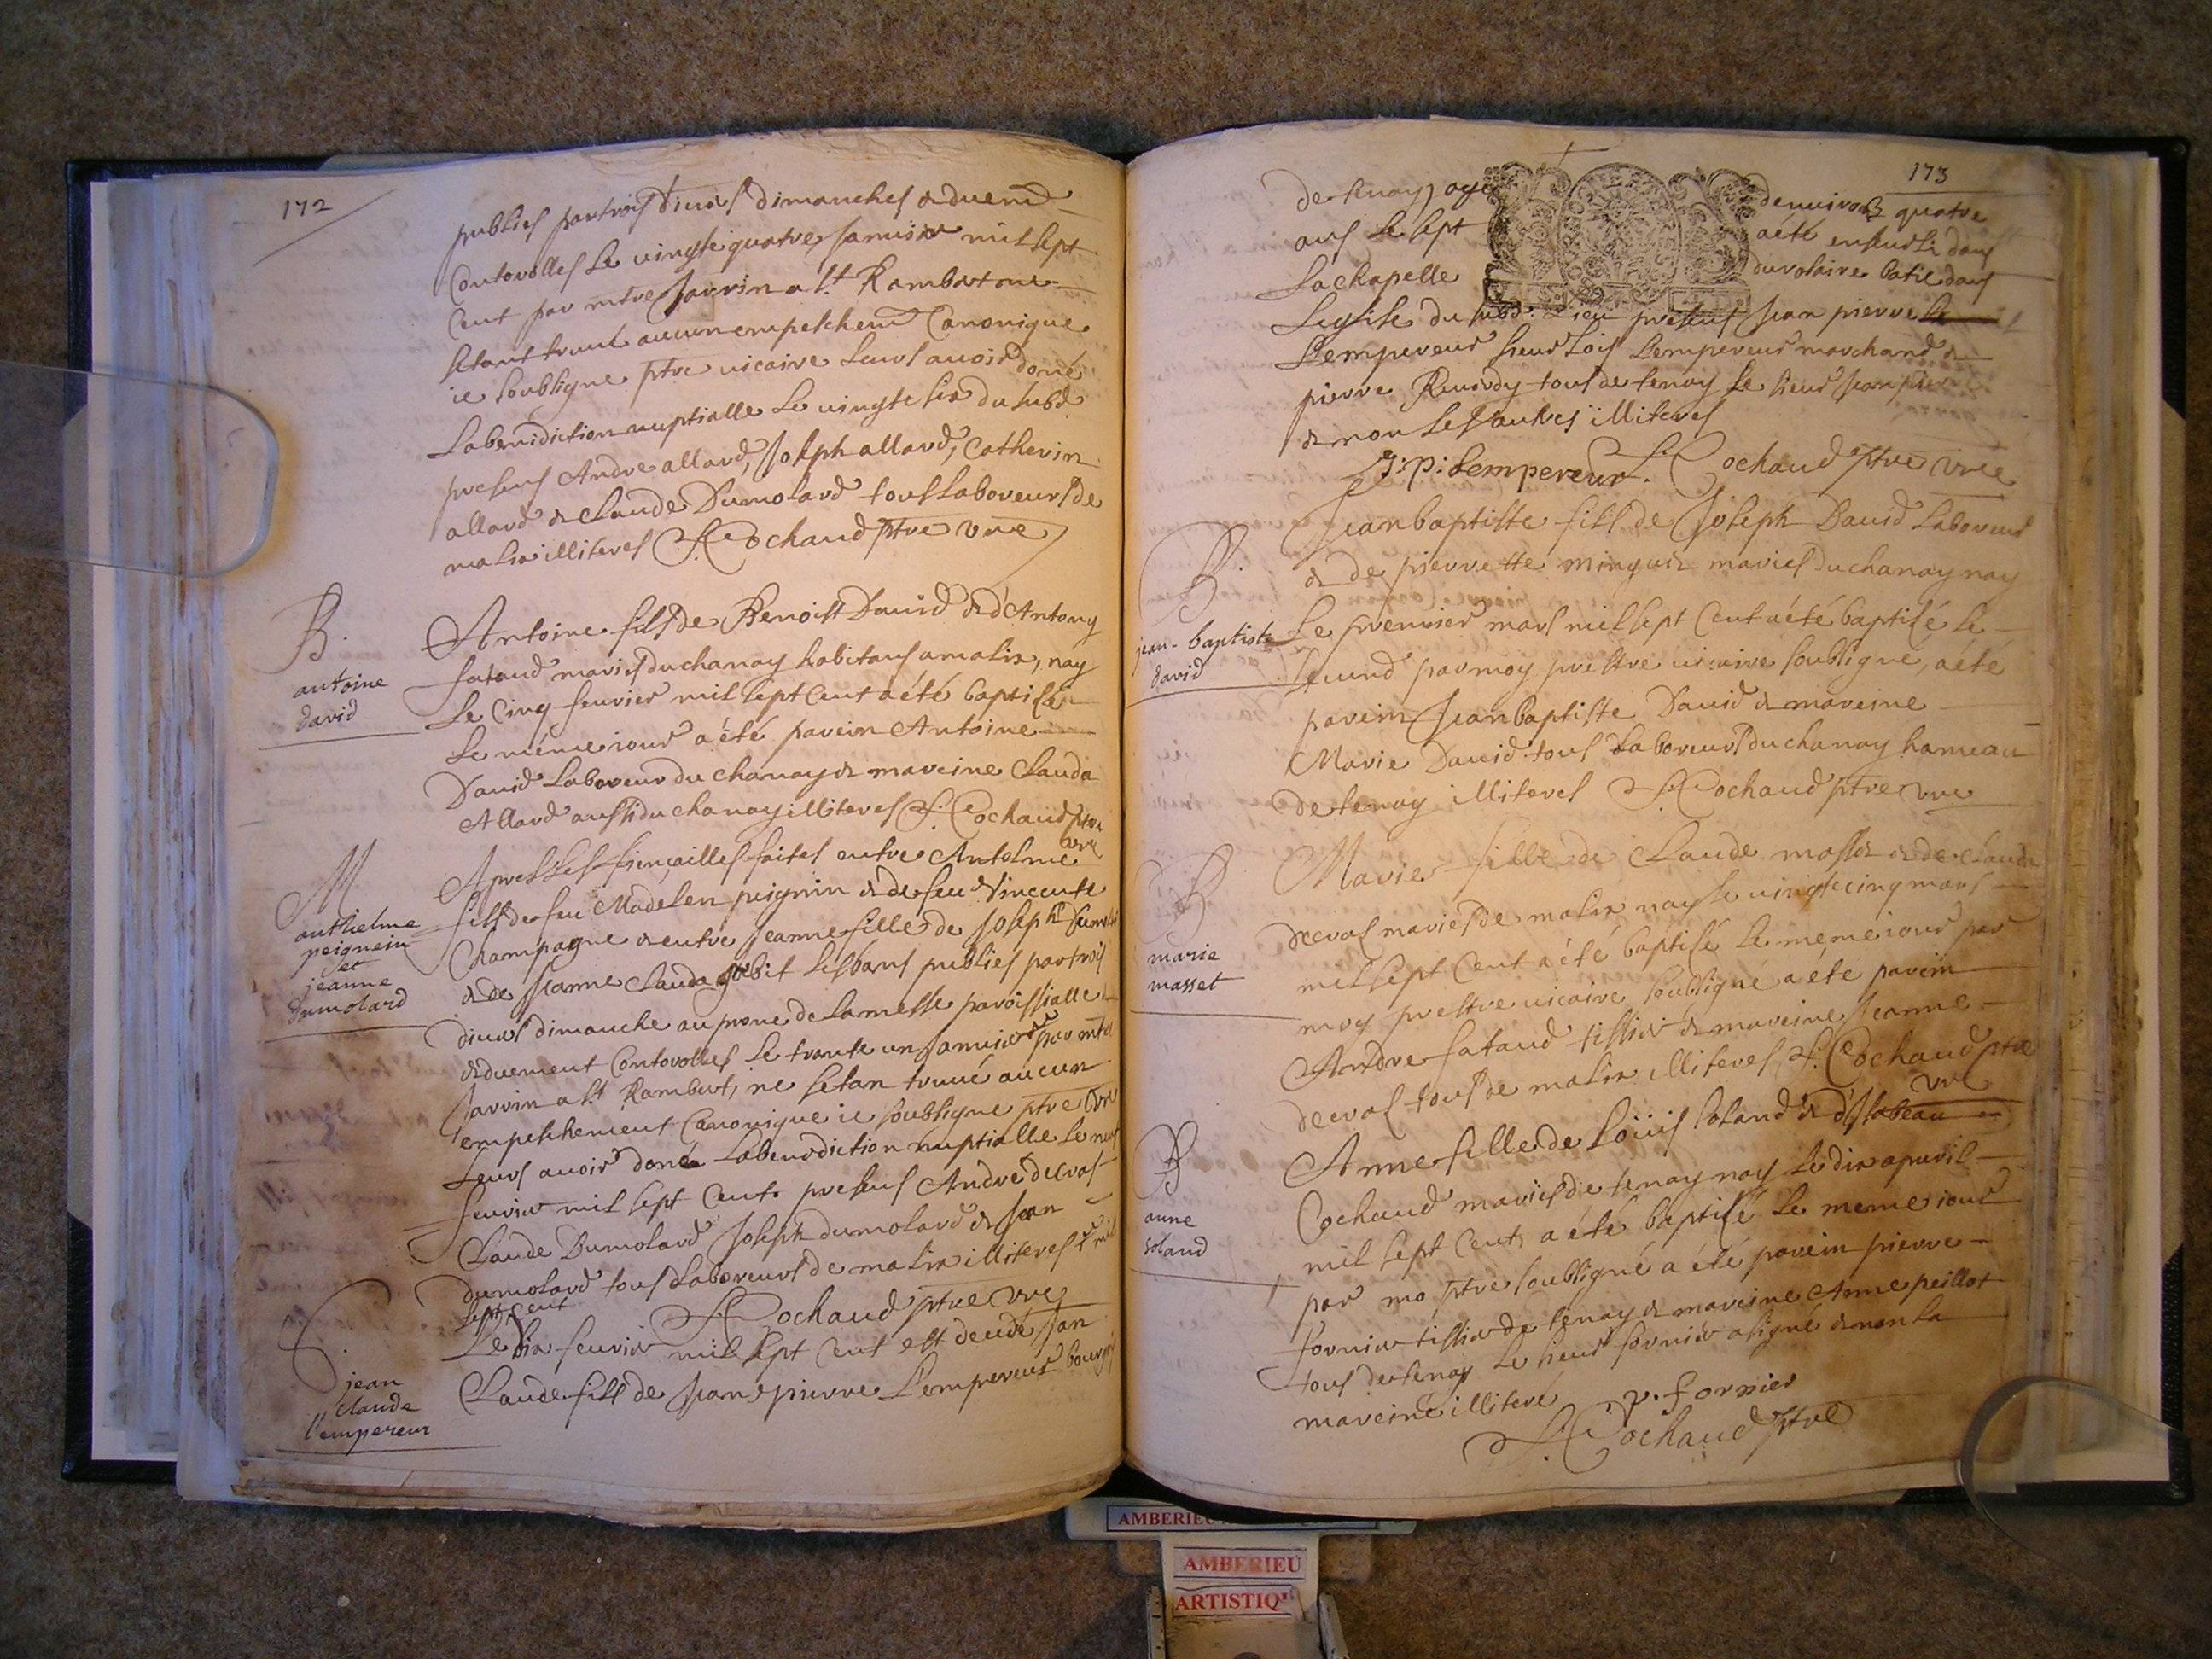 172
publies par trois divers dimanches & duemt
Controlles le vingte quatre janvier mil sept
Cent par mtre Jarrin a St Rambert ne
setant truvé aucun empeschemt Canonique
ie soubsigne ptre vicaire leurs avoir doné
la benidiction nuptialle le vingte six du susd
presens Andre allard, Joseph allard, Catherin
allard & Claude Dumolard tous laboreurs de
malix illiteres f. Cochaud ptre vre
B.
antoine
david
Antoine fils de Benoist David & d'Antony
sataud maries du chanay habitans a malix, nay
Le Cinq fevrier mil sept Cent a été baptisé
le méme iour a été parein Antoine
David Laboreur du chanay & mareine Clauda
Allard aussi du chanay illiteres f. Cochaud ptre
vre
M
anthelme
peignein
et
jeanne
dumolard
Apres les fiençailles faites entre Antelme
fils de feu Madelen peignin & de feu Vincente
Champagne & entre Jeanne fille de Joseph Dumolard
& de Jeanne Clauda gobit les bans publies par trois
divers dimanche au prone de la messe paroissialle
& duement Controlles le trante un janvier par mtre
Jarrin a St Rambert, ne setan truvé aucun
empeschement Canonique ie soubsigne ptre vre
Leurs avoir doné la benediction nuptialle le neuf
fevrier mil sept Cent. presens André decras
Claude Dumolard Joseph dumolard & Jean
dumolard tous Laboreurs de malix illiteres mil
sept cent
f. Cochaud ptre vre
S
jean
claude
l'empereur
Le dix fevrier mil sept Cent est decedé Jan
Claude fils de Jean pierre Lempereur bourgeois
173
de tenay, agé d'environ quatre
ans le sept a été enseveli dans
La chapelle du rosaire batie dans
Leglise du susd. Lieu presens Jean pierre
Lempereur sieur Lois Lempereur marchand &
pierre Ruirdy tous de tenay le sieur Jean pierre
& non les autres illiteres
J: p: Lempereur. f. Cochaud ptre vre
B.
jean-baptiste
david
Jean baptiste fils de Joseph David Laboreur
& de pierrette minguet maries du chanay nay
Le premier mars mil sept Cent a été baptisé le
second par moy prestre vicaire soubsigné, a été
parein Jean baptiste David & mareine
Marie David tous Laboreurs du chanay hameau
de tenay illiteres f. Cochaud ptre vre
B
marie
masset
Marie fille de Claude masset & de Clauda
decras maries de malix nay le vingte cinq mars
mil sept Cent a été baptisé le meme iour par
moy prestre vicaire soubsigné a été parein
Andre sataud tissier & mareine Jeanne
decras tous de malix illiteres, f. Cochaud ptre
vre
B
anne
soland
Anne fille de Loüis soland & d'Isabeau
Cochaud maries de tenay nay le dix apuril
mil sept Cent, a été baptisé le meme iour
par mo ptre soubsigné a été parein pierre
fornier tissier de tenay & mareine Anne peillot
tous de tenay le sieur fornier a signé & non la
mareine illiteré
p. fornier
f. Cochaud ptre
AMBERIEU
AMBERIEU
ARTISTIQ